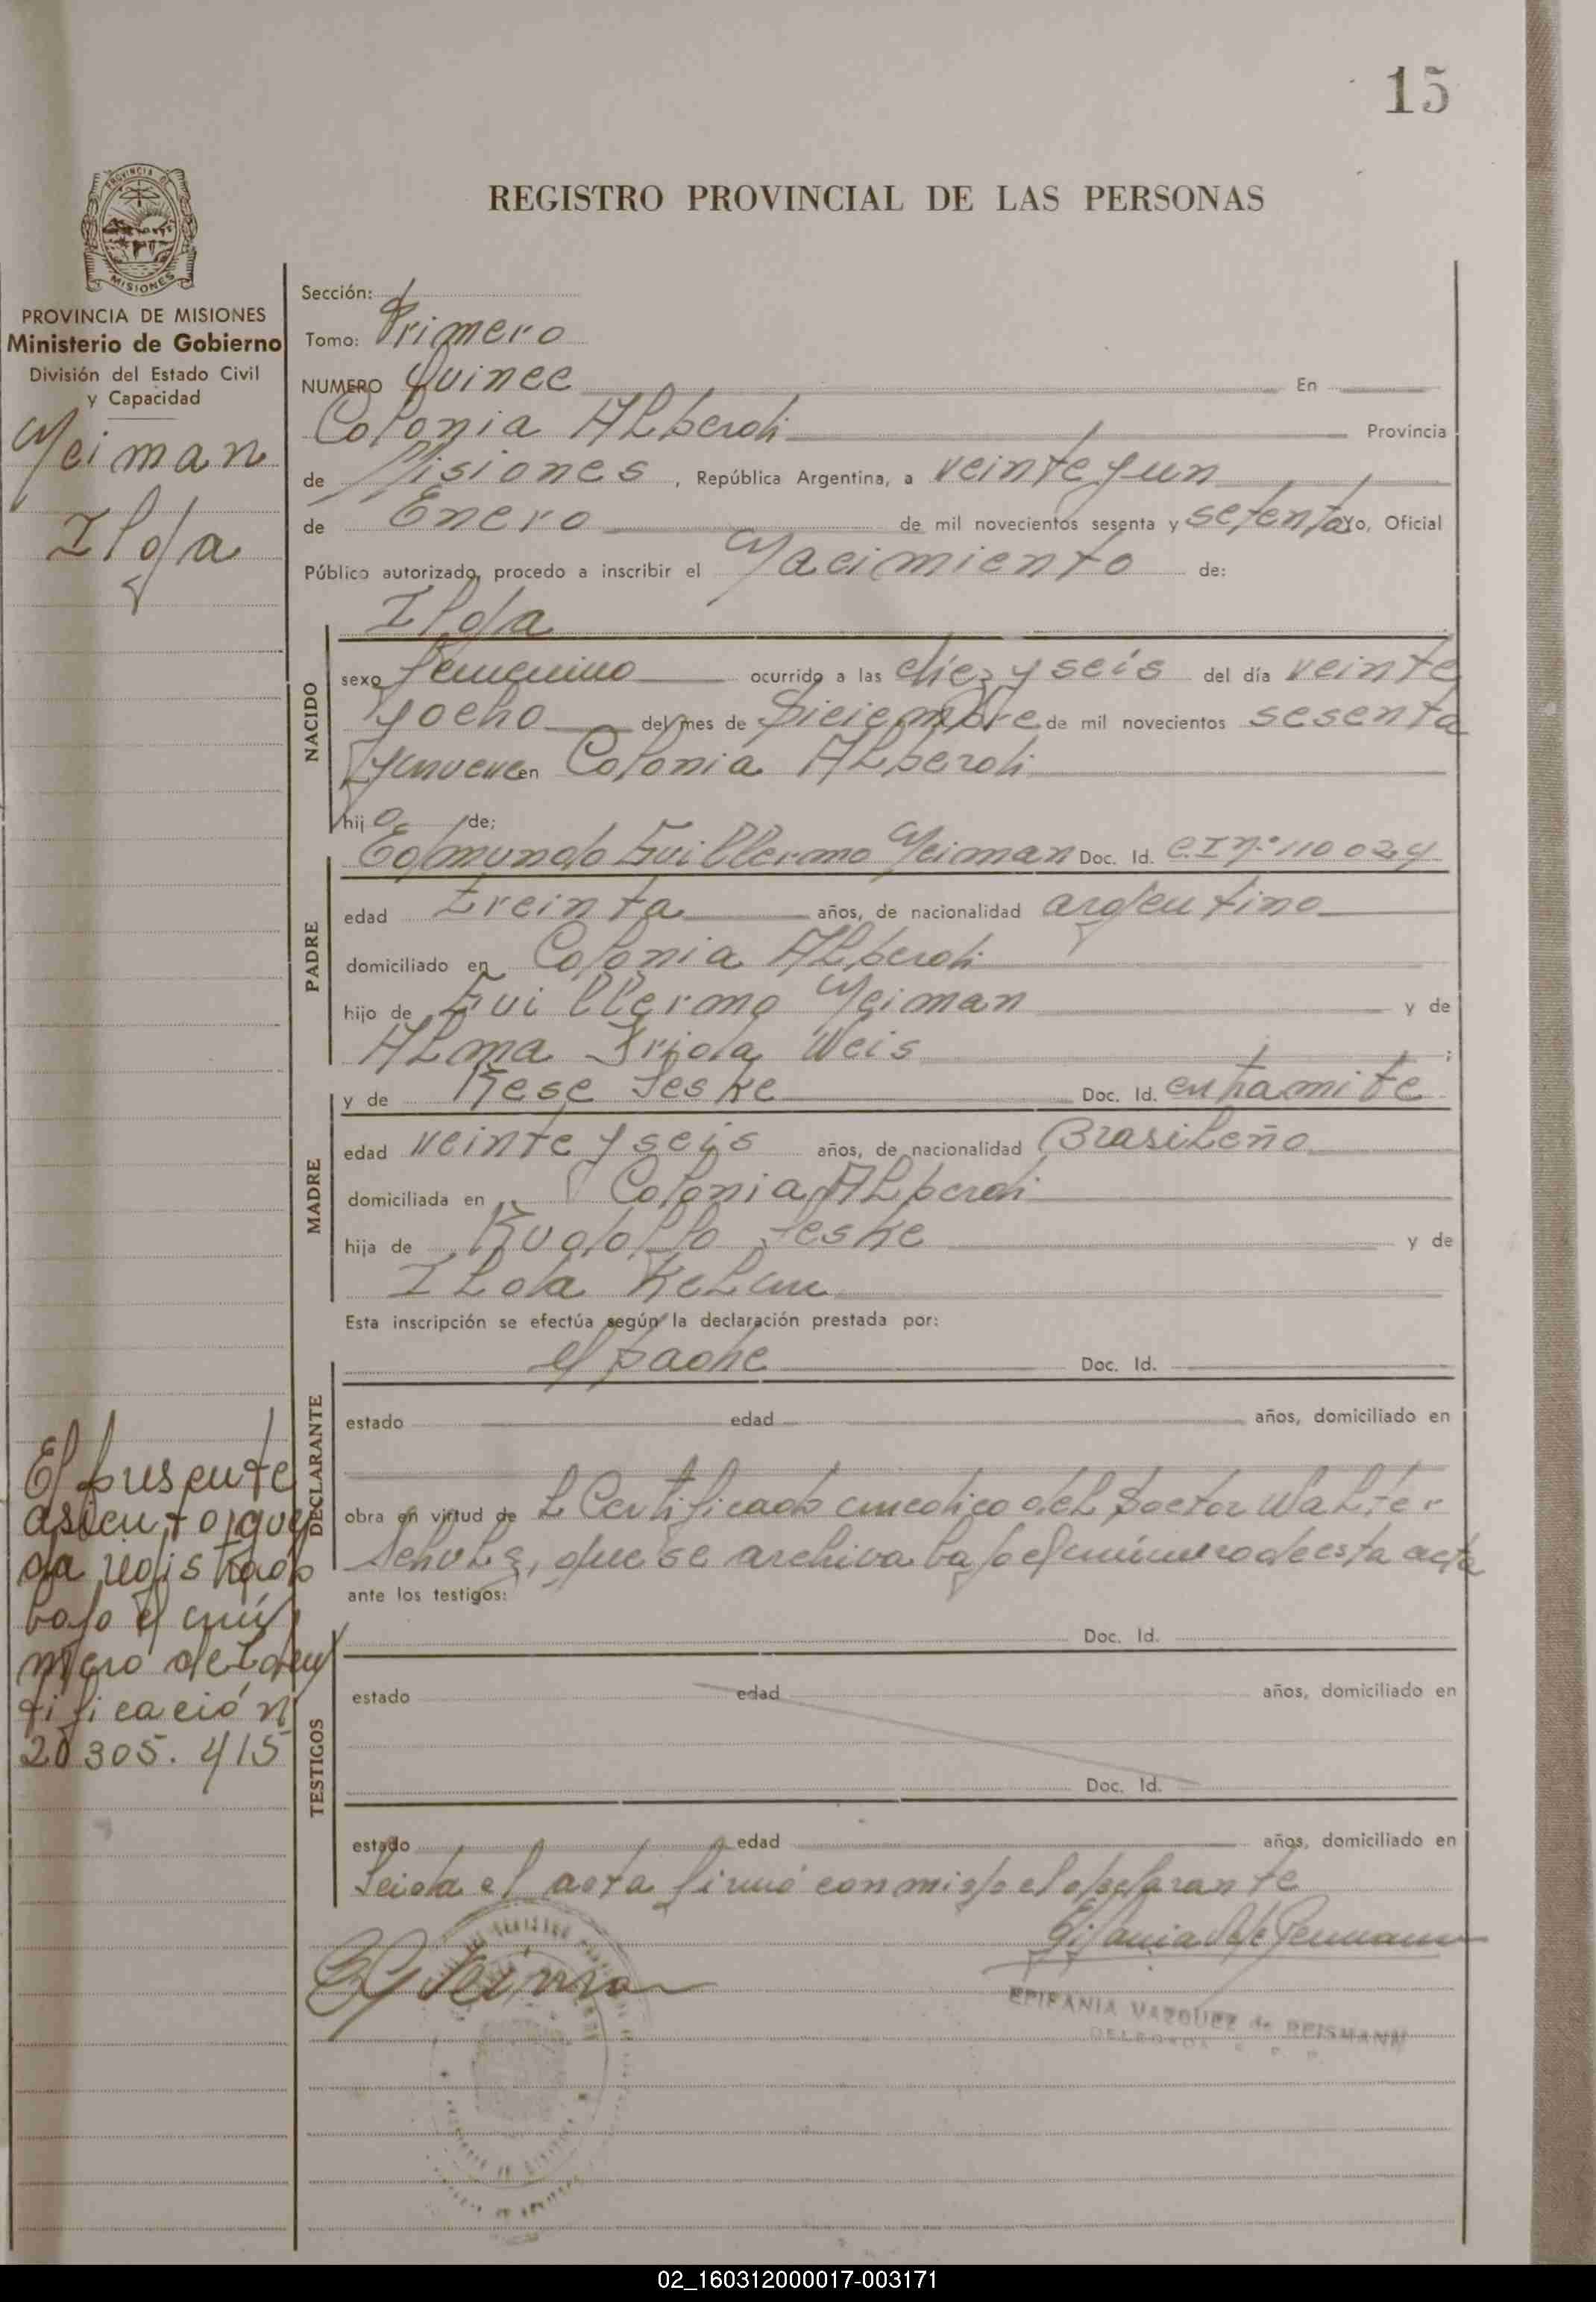 15
REGISTRO PROVINCIAL DE LAS PERSONAS
PROVINCIA DE
MISIONES
PROVINCIA DE MISIONES
Ministerio de Gobierno
División del Estado Civil
y Capacidad
Neiman
Ilda
Sección:
Tomo: Primero
NUMERO Quince En
Colonia Alberdi Provincia
de Misiones, República Argentina, a veinte y un
de Enero de mil novecientos sesenta y setenta Yo, Oficial
Público autorizado, procedo a inscribir el Nacimiento de:
Ilda
NACIDO
sexo femenino ocurrido a las diez y seis del día veinte
y ocho del mes de Diciembre de mil novecientos sesenta
y nueve en Colonia Alberdi
hija de;
Edmundo Guillermo Neiman Doc. Id. C.I Nº 110024
PADRE
edad treinta años, de nacionalidad argentino
domiciliado en Colonia Alberdi
hijo de Guillermo Neiman y de
Alma Weis;
y de Rese Jeske Doc. Id. en tramite
MADRE
edad veinte y seis años, de nacionalidad Brasileño
domiciliada en Colonia Alberdi
hija de Rudolfo Jeske y de
Ilda
Esta inscripción se efectúa según la declaración prestada por:
el padre Doc. Id.
DECLARANTE
estado edad años, domiciliado en
obra en virtud de L Certificado medico del Doctor Walter
Schulz, que se archiva bajo el número de esta acta
ante los testigos:
Doc. Id.
TESTIGOS
estado edad años, domiciliado en
Doc. Id.
estado edad años, domiciliado en
Leida el acta firmó conmigo el declarante
El presente
asiento que
da registrado
bajo el nú
mero de Iden
tificación
20305.415
EPIFANIA VAZQUEZ de REISMANN
02_160312000017-003171